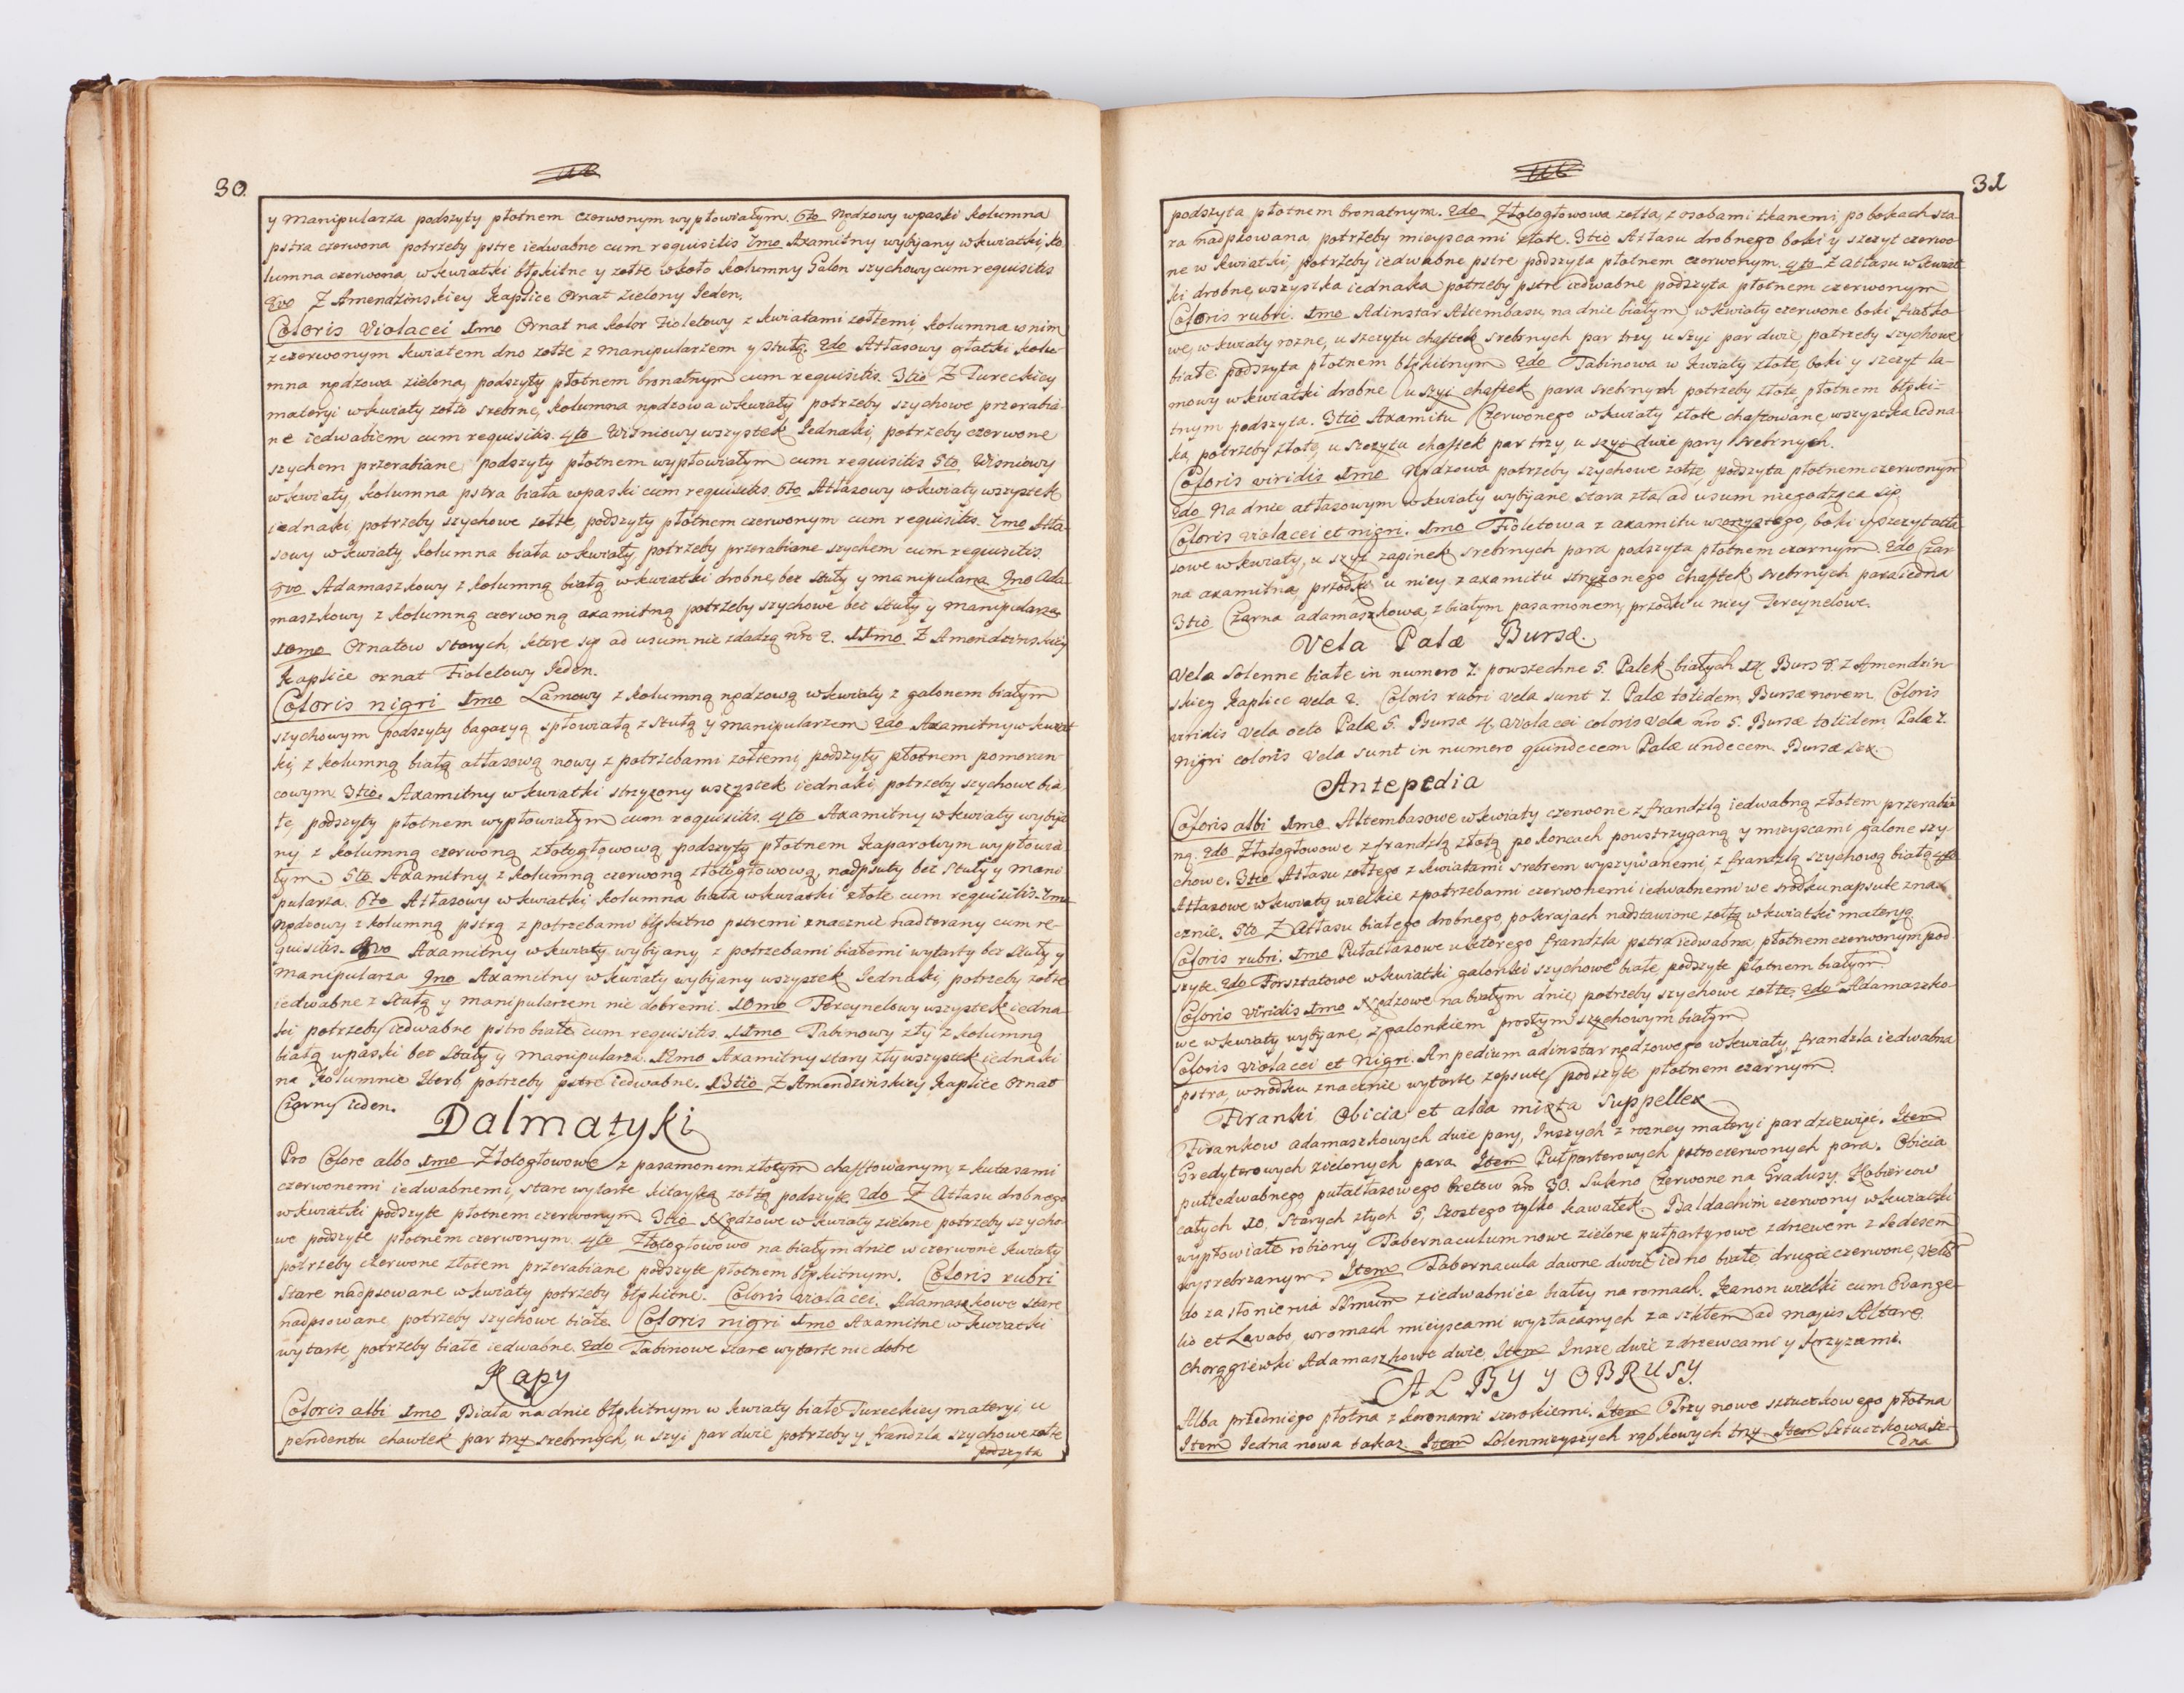 30
y Manipularza podszyty płotnem czerwonym wypłowiałym. 6to Nędzowy wpaski kolumna
pstra czerwona potrzeby pstre iedwabne cum requisitis 7mo Axamitny wybijany wkwiatki, ko
lumna czerwona wkwiatki błękitne y żołte wkoło kolumny Galon szychowy cum requisitis
8vo Z Amendzinskiey Kaplice Ornat zielony Ieden.
Coloris Violacei 1mo Ornat na kolor Fioletowy z kwiatami żołtemi, kolumna w nim
z czerwonym kwiatem dno żołte z Manipularzem y stułą. 2do Atłasowy gładki kolu-
mna nędzowa zielona, podszyty płotnem bronatnym cum requisitis. 3tio Z Tureckiey
materyi wkwiaty żołto srebrne, kolumna nędzowa wkwiaty potrzeby szychowe przerabia-
ne iedwabiem cum requisitis. 4to Wiśniowy wszystek Iednaki, potrzeby czerwone
szychem przerabiane podszyty płotnem wypłowiałym cum requisitis 5to Wisniowy
wkwiaty kolumna pstra biała wpaski cum requisitis. 6to Atłasowy wkwiaty wszystek
iednaki potrzeby szychowe żołte, podszyty płotnem czerwonym cum requisitis. 7mo Atła-
sowy wkwiaty, kolumna biała wkwiaty, potrzeby przerabiane szychem cum requisitis.
8vo Adamaszkowy z kolumną białą wkwiatki drobne, bez stuły y manipularza 9no Ada
maszkowy z kolumną czerwoną axamitną potrzeby szychowe bez Stuły y Manipularza
10mo Ornatow starych, ktore się ad usum nie zdadzą nro 2. 11mo Z Amendzinskiey
Kaplice ornat Fioletowy Ieden.
Coloris nigri 1mo Lamowy z kolumną nędzową wkwiaty z galonem białym
szychowym podszyty bagazyą spłowiałą z stułą y manipularzem 2do Axamitny w kwiat
ki, z kolumną białą atłasową nowy z potrzebami żołtemi, podszyty płotnem pomoran
cowym. 3tio. Axamitny wkwiatki strzyżony wszystek iednaki, potrzeby szychowe bia
łe, podszyty płotnem wypłowiałym cum requisitis. 4to Axamitny wkwiaty wybija
ny z kolumną czerwoną złotogłowową podszyty płotnem Kaparowym wypłowia
łym 5to Axamitny z kolumną czerwoną złotogłowową, nadpsuty bez Stuły y Mani
pularza. 6to Atłasowy wkwiatki kolumna biała wkwiatki złote cum requisitis. 7mo
Nędzowy z kolumną pstrą z potrzebami błękitno pstremi znacznie nadtorany cum re-
quisitis. 8vo Axamitny wkwiaty wybijany z potrzebami białemi wytarty bez stuły y
Manipularza 9no Axamitny wkwiaty wybijany wszystek Iednaki, potrzeby żołte
iedwabne z stułą y manipularzem nie dobremi. 10mo Tercynelowy wszystek iedna-
ki potrzeby iedwabne pstro białe cum requisitis. 11mo Tabinowy zły z kolumną
białą wpaski bez Stuły y Manipularza. 12mo Axamitny stary zły wszystek iednaki
na Kolumnie Herb, potrzeby pstre iedwabne. 13tio Z Amendzinskiey Kaplice Ornat
Czarny ieden.
Dalmatyki
Pro Colore albo 1mo Złotogłowowe z pasamonem złotym chafftowanym, z kutasami
czerwonemi iedwabnemi, stare wytarte kitayką żołtą podszyte 2do Z Atłasu drobnego
wkwiatki podszyte płotnem czerwonym. 3tio Nędzowe w kwiaty zielone potrzeby szycho-
we podszyte płotnem czerwonym 4to Złotogłowowe na białym dnie w czerwone kwiaty
potrzeby czerwone złotem przerabiane podszyte płotnem błękitnym. Coloris rubri
Stare nadpsowane wkwiaty potrzeby błękitne. Coloris violacei. Adamaszkowe stare
nadpsowane, potrzeby szychowe białe. Coloris nigri 1mo Axamitne w kwiatki
wytarte, potrzeby białe iedwabne. 2do Tabinowe stare wytarte nie dobre
Kapy
Coloris albi 1mo Biała na dnie błękitnym w kwiaty białe Tureckiey materyi, u
pendentu chawtek par trzy srebrnych, u szyi par dwie potrzeby y frandzla szychowe żołte
podszyta
31
podszyta płotnem bronatnym. 2do Złotogłowowa żołta, z osobami tkanemi, po bokach sta-
ra nadpsowana, potrzeby mieyscami złote. 3tio Atłasu drobnego boki y szczyt czerwo-
ne w kwiatki, potrzeby iedwabne pstre podszyta płotnem czerwonym. 4to Z Atłasu w kwiat
ki drobne, wszystka iednaka potrzeby pstre iedwabne podszyta płotnem czerwonym
Coloris rubri. 1mo Adinstar Altembasu, na dnie białym, wkwiaty czerwone boki fiałko-
we, w kwiaty rozne, u szczytu chaftek srebrnych par trzy, u szyi par dwie, potrzeby szychowe
białe podszyta płotnem błękitnym 2do Tabinowa w kwiaty złote, boki y szczyt la-
mowy wkwiatki drobne u szyi chaftek para srebrnych potrzeby złote, płotnem błęki-
tnym podszyta. 3tio Axamitu Czerwonego wkwiaty złote chaftowane, wszystka iedna-
ka, potrzeby złote, u szczytu chaftek par trzy, u szyi dwie pary srebrnych.
Coloris viridis 1mo Nędzowa potrzeby szychowe żołte, podszyta płotnem czerwonym
2do Na dnie atłasowym wkwiaty wybijane stara zła ad usum niegodząca się
Coloris violacei et nigri. 1mo Fioletowa z axamitu wzorzystego, boki y szczyt atła
sowe wkwiaty, u szyi zapinek srebrnych para podszyta płotnem czarnym. 2do Czar
na axamitna, przodki u niey z axamitu strzyżonego chaftek srebrnych para iedna
3tio Czarna adamaszkowa, z białym pasamonem, przodki u niey Tercynelowe.
Vela Palæ Bursæ.
Vela Solenne białe in numero 7. powszechne 5. Palek białych 14. Burs 8. z Amendzin
skiey Kaplice vela 2. Coloris rubri vela sunt 7. Palæ totidem, Bursæ novem. Coloris
viridis Vela octo Palæ 5. Bursæ 4. Violacei coloris vela nro 5. Bursæ totidem Palæ 7.
Nigri coloris vela sunt in numero quindecem Palæ undecem. Bursæ sex.
Antepedia
Coloris albi 1mo Altembasowe wkwiaty czerwone z frandzlą iedwabną złotem przerabia
ną. 2do Złotogłowowe z frandzlą złotą po koncach poustrzyganą y mieyscami galone szy-
chowe. 3tio Atłasu żołtego z kwiatami srebrem wyszywanemi, z frandzlą szychową białą 4to
Atłasowe wkwiaty wielkie z potrzebami czerwonemi iedwabnemi we srodku napsute zna-
cznie. 5to Z Atłasu białego drobnego, pokrajach nadstawione żołtą wkwiatki materyą
Coloris rubri. 1mo Pułatłasowe u ktorego frandzla pstra iedwabna płotnem czerwonym pod-
szyte. 2do Forsztatowe wkwiatki galonki szychowe białe, podszyte płotnem białym.
Coloris viridis 1mo Nędzowe na białym dnie, potrzeby szychowe żołte, 2do Adamaszko-
we wkwiaty wybijane, z galonkiem prostym szychowym białym
Coloris violacei et Nigri. Anpedium adinstar nędzowego wkwiaty, frandzla iedwabna
pstra, wsrodku znacznie wytarte zepsute, podszyte płotnem czarnym
Firanki Obicia et alia mixta Suppellex
Firankow adamaszkowych dwie pary, Inszych z rozney materyi par dziewięć. Item
Gredyterowych zielonych para Item Pułparterowych pstroczerwonych para. Obicia
pułiedwabnego pułatłasowego bretow nro 30. Sukno Czerwone na Gradusy. Kobiercow
całych 10, Starych złych 5, szostego tylko kawałek. Baldachim czerwony wkwiatki
wypłowiałe robiony Tabernaculum nowe zielone pułpartyrowe z drzewem z Sedesem
wysrebrzanym. Item Tabernacula dawne dwoie, iedno białe, drugie czerwone, Velū
do zasłonienia 11mum z iedwabnice białey na romach. Kanon wielki cum Evange-
lio et Lavabo, wromach mieyscami wyzłacanych za szkłem ad majus Altare.
Chorągiewki Adamaszkowe dwie, Item Insze dwie z drzewcami y krzyżami.
ALBY Y OBRUSY.
Alba przedniego płotna z koronami szerokiemi. Item Trzy nowe sztuczkowego płotna
Item Iedna nowa takaz. Item Solennieyszych rąbkowych trzy. Item Sztuczkowa ie-
dna